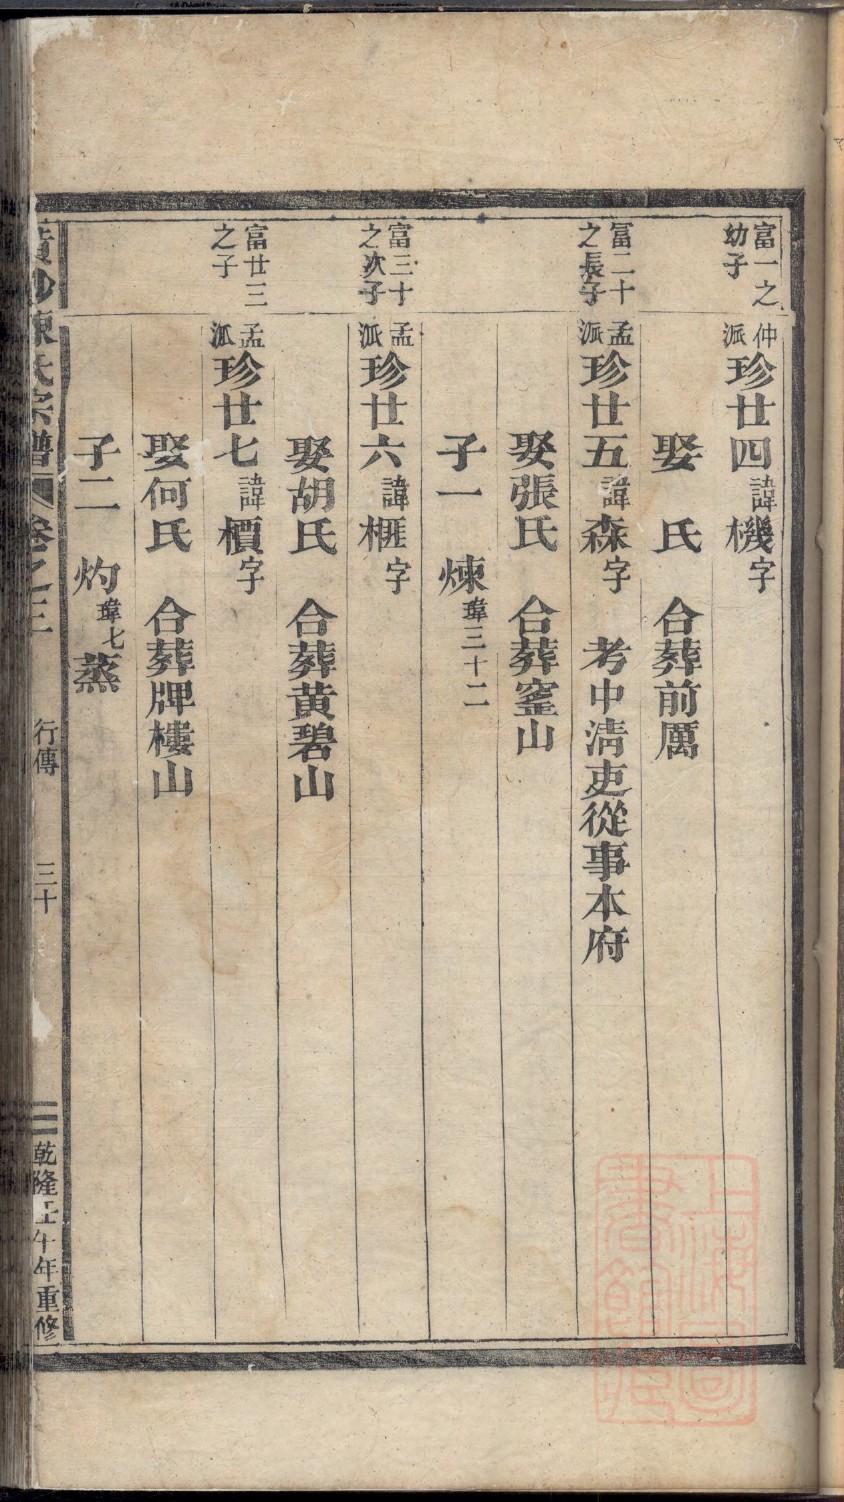 富一之幼子
仲派珍廿四諱機字
娶　氏　合葬前厲
冨二十之長子
孟派珍廿五諱森字　考中淸吏從事本府
娶張氏　合葬窰山
子一　煉瑋三十二
富三十之次子
孟派珍廿六諱榧字
娶胡氏　合葬黄碧山
富廿三之子
孟派珍廿七諱櫝字
娶何氏　合葬牌樓山
子二　灼瑋七蒸
陳氏宗譜　卷之三　行傳　三十　乾隆壬午年重修
上海圖書館藏